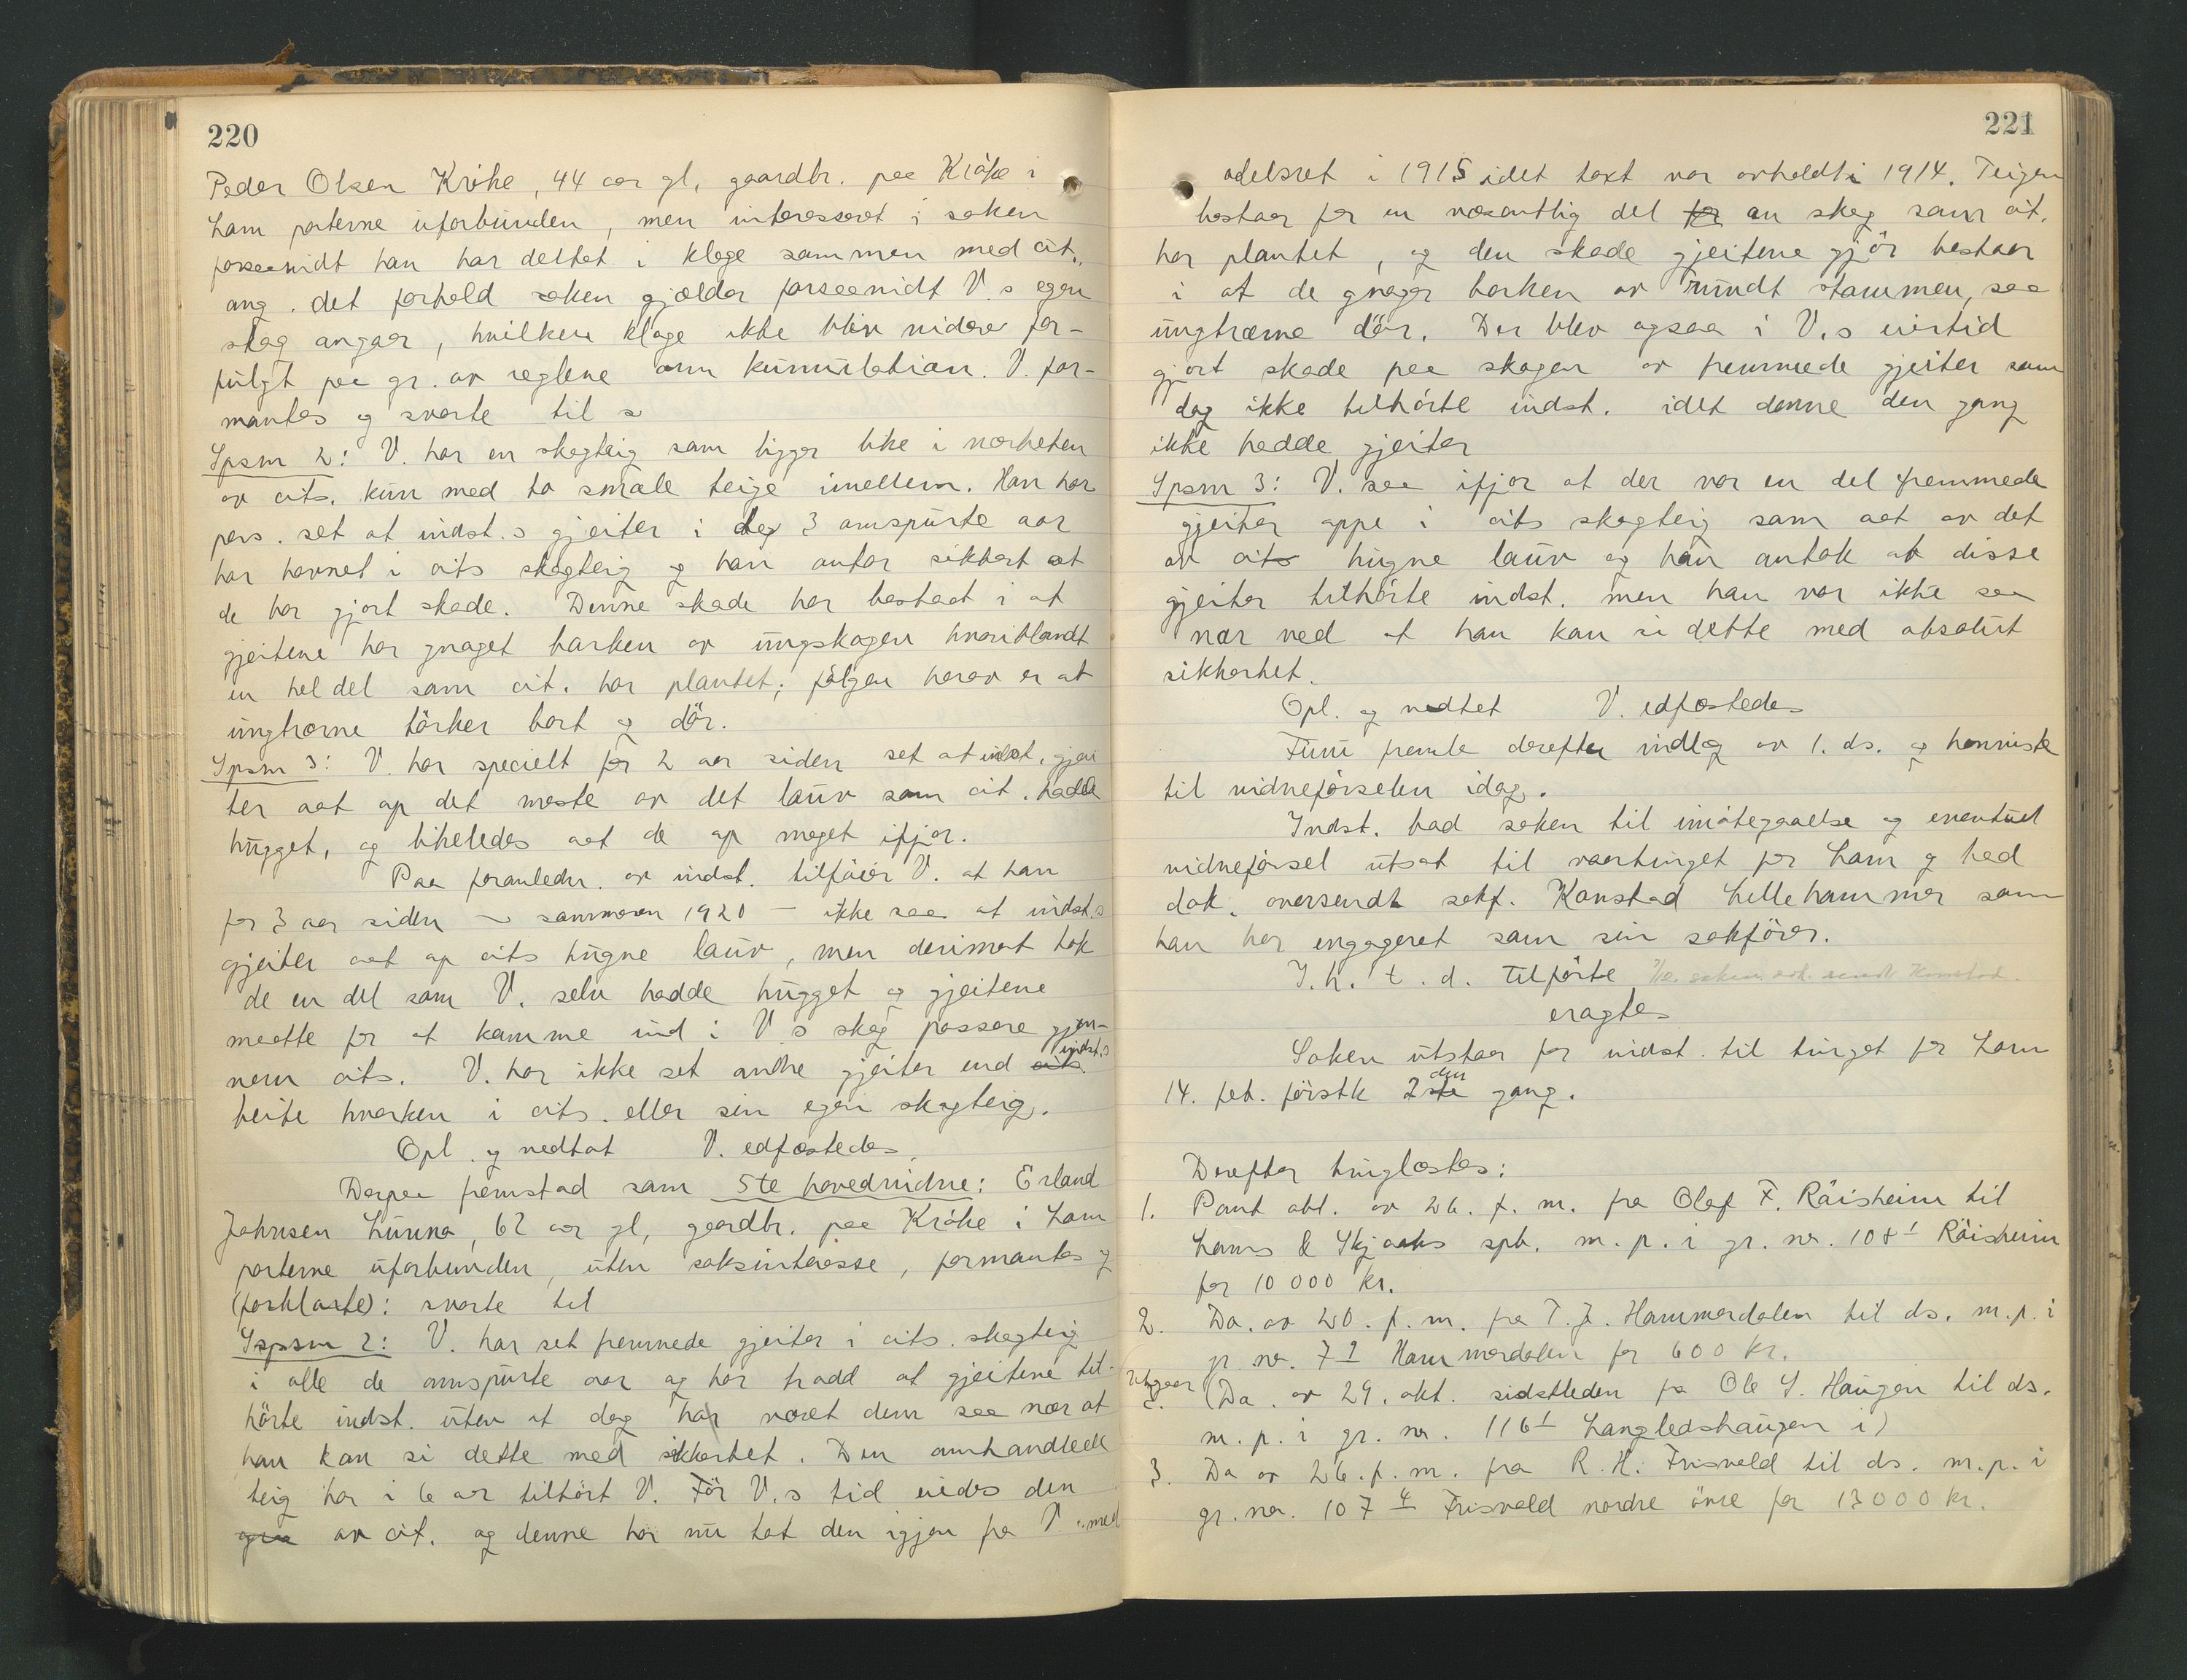 220
Peder Olsen Kröke, 44 aar gl, gaardbr. paa Kröke i
Lom parterne uforbunden, men interesseret i saken
forsaavidt han har deltat i klage sammen med cit.,
ang. det forhold saken gjælder forsaavidt V.s egen
skog angaar, hvilken klage ikke blir videre for-
fulgt paa gr. av reglene om kumulation. V. for-
mantes og svarte til
Spsm 2: V. har en skogteig som ligger like i nærheten
av cits. kun med to smale teige imellem. Han har
pers. set at indst.s gjeiter i de 3 omspurte aar
har havnet i cits skogteig og han antar sikkert at
de har gjort skade. Denne skade har bestaat i at
gjeitene har gnaget barken av ungskogen hvoriblandt
en hel del som cit. har plantet; følgen herav er at
ungtrærne tørker bort og dör.
Spsm 3: V. har specielt for 2 aar siden set at indst. gjei
ter aat op det meste av det lauv som cit. hadde
hugget, og likeledes aat de op meget ifjor.
Paa foranledn. av indst. tilföier V. at han
for 3 aar siden – sommeren 1920 – ikke saa at indst.s
gjeiter aat op cits hugne lauv, men derimot tok
de en del som V. selv hadde hugget og gjeitene
maatte for at komme ind i V.s skog passere gjen-
nem cits. V. har ikke set andre gjeiter end cits indst.s
beite hverken i cits. eller sin egen skogteig.
Opl. og vedtat V. edfæstedes.
Derpaa fremstod som 5te hovedvidne: Erland
Johnsen Lunna, 62 aar gl, gaardbr. paa Kröke i Lom
parterne uforbunden, uten saksinteresse, formantes og
(forklarte): svarte til
Spsm 2: V. har set fremmede gjeiter i cits. skogteig
i alle de omspurte aar og har trodd at gjeitene til-
hörte indst. uten at dog har været dem saa nær at
han kan si dette med sikkerhet. Den omhandlede
teig har i 6 aar tilhört V. Før V.s tid eiedes den
av cit. og denne har nu tat den igjen fra V. med
221
odelsret i 1915 idet taxt var avholdt i 1914. Teigen
bestaar for en væsentlig del for av skog som cit.
har plantet, og den skade gjeitene gjör bestaar
i at de gnager barken av rundt stammen, saa
ungtrærne dör. Der blev ogsaa i V.s eiertid
gjort skade paa skogen av fremmede gjeiter som
dog ikke tilhörte indst. idet denne den gang
ikke hadde gjeiter
Spsm 3: V. saa ifjor at der var en del fremmede
gjeiter oppe i cits skogteig som aat av det
av cits hugne lauv og han antok at disse
gjeiter tilhörte indst. men han var ikke saa
nær ved at han kan si dette med absolut
sikkerhet.
Opl. og vedtat V. edfæstedes
Furu fremla derefter indlæg av 1. ds. og henviste
til vidneförselen idag.
Indst. bad saken til imötegaaelse og eventuel
vidneförsel utsat til vaartinget for Lom og bad
dok. oversendt sakf. Konstad Lillehammer som
han har engageret som sin sakförer.
I. h. t. d. tilförte
eragtes
Saken utstaar for indst. til tinget for Lom
14. feb. förstk 2ste den gang.
Derefter tinglæstes:
1. Pant obl. av 26. f. m. fra Olaf F. Räisheim til
Loms & Skjaaks spb. m. p. i gr. nr. 108¹ Räisheim
for 10 000 kr.
2. Do. av 20. f. m. fra T. J. Hammerdalen til ds. m. p. i
gr. nr. 7 1 Hammerdalen for 600 kr.
Utgaar
3. (Do. av 29. okt. sidstleden fra Ole S. Haugen til ds.
m. p. i gr. nr. 116¹ Langledshaugen i)
3. Do av 26. f. m. fra R. H. Frisvold til ds. m. p. i
gr. nr. 107 4 Frisvold nordre övre for 13000 kr.